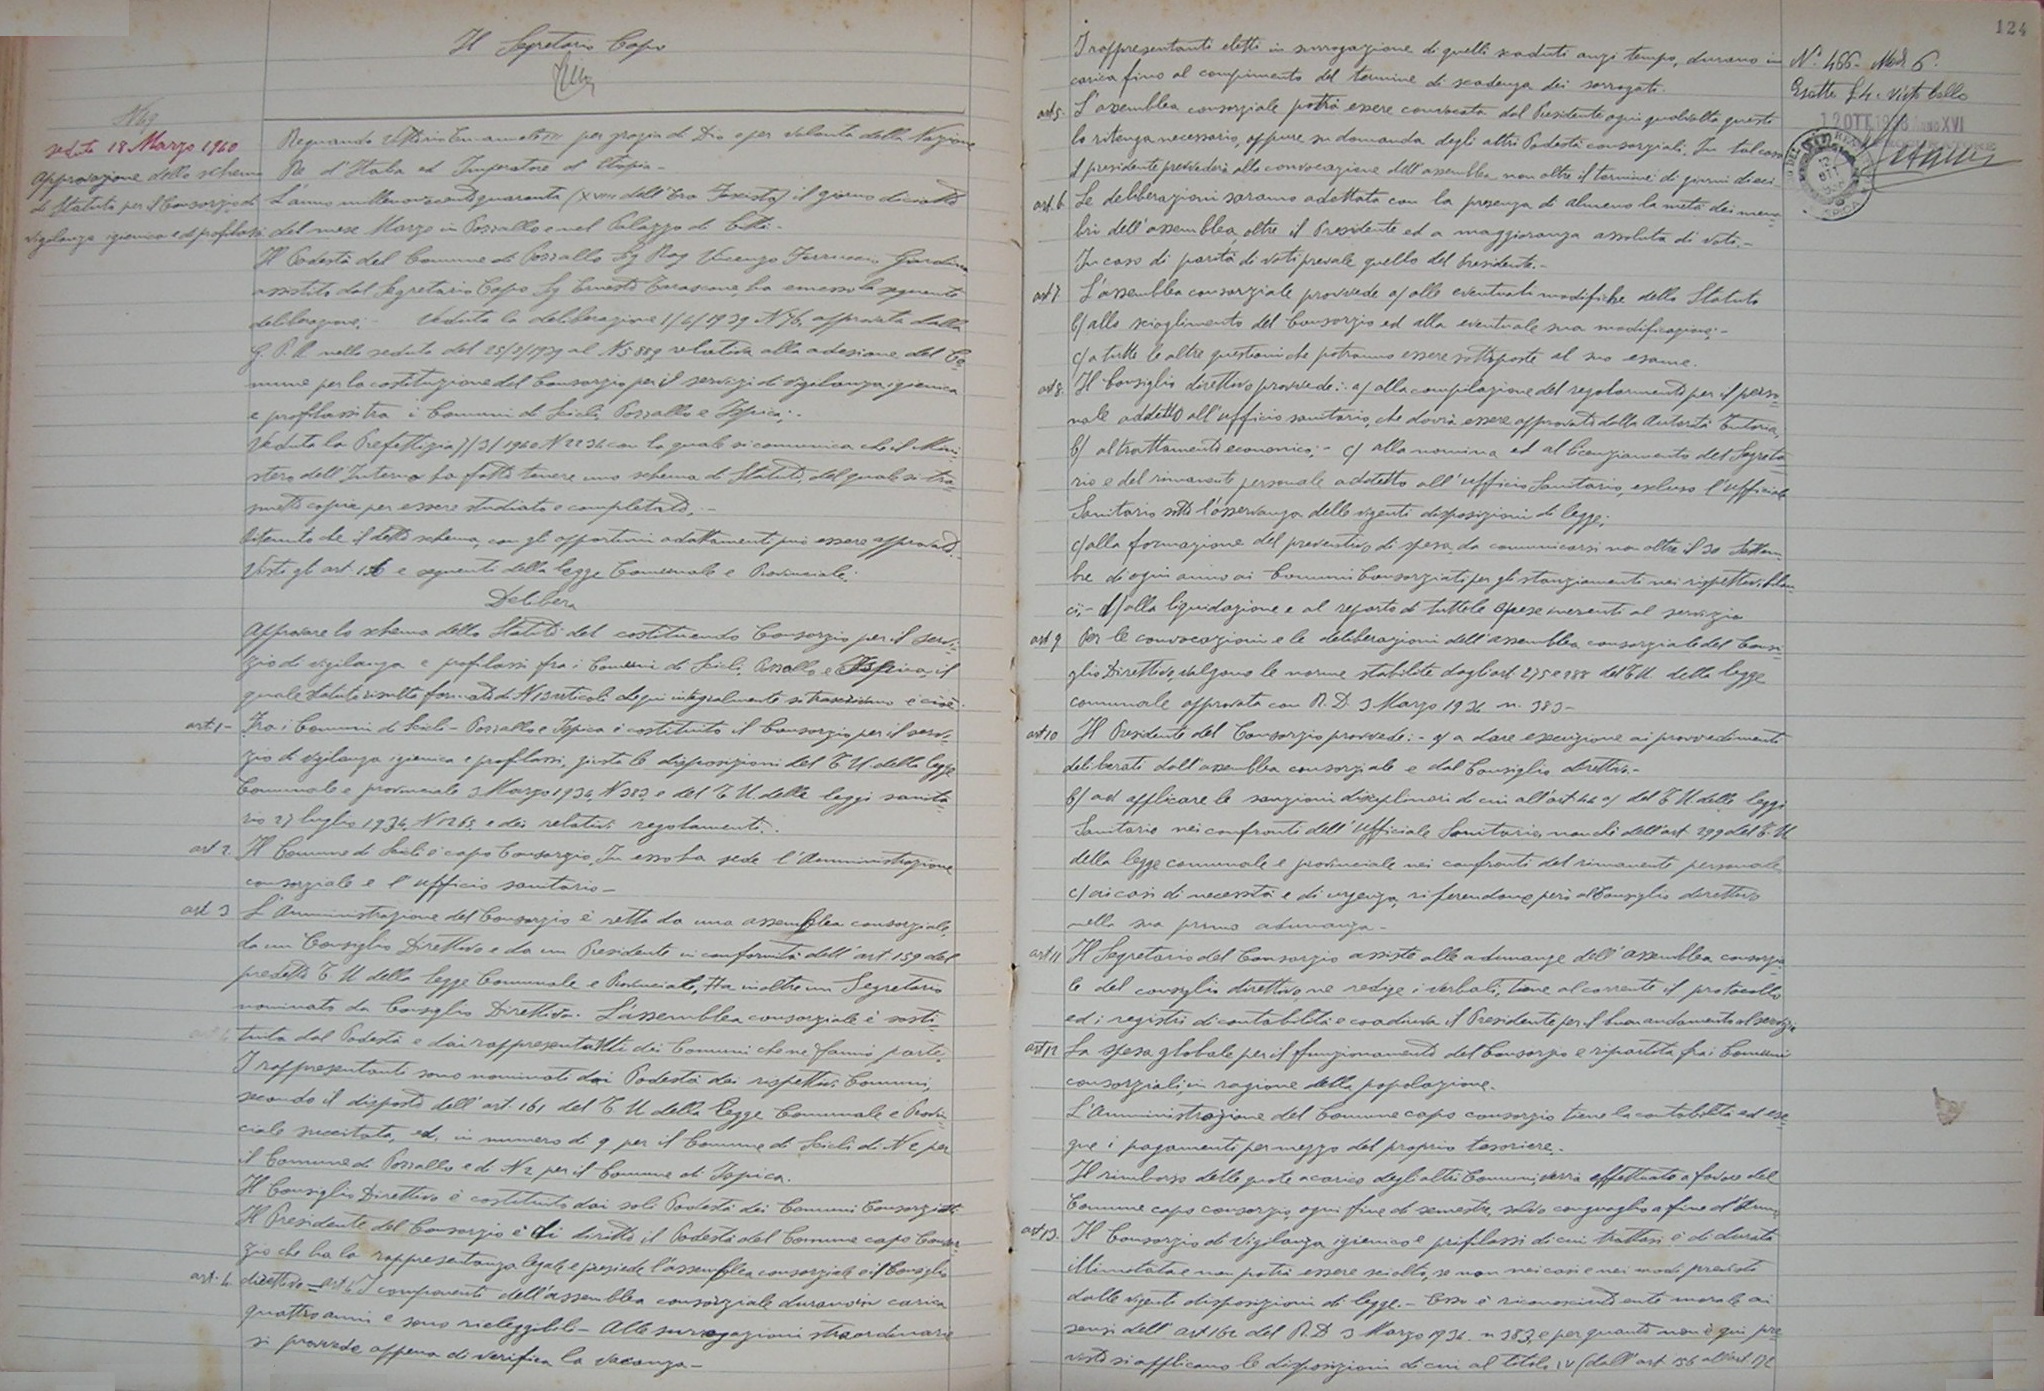 Il Segretario Capo
N 49
seduta 18 Marzo 1940
Approvazione dello schema
di Statuto per il Consorzio di
vigilanza igienica e di profilassi
Regnando Vittorio Emanuele III per grazia di Dio e per volontà della Nazione
Re d'Italia ed Imperatore d'Etiopia -
L'anno millenovecentoquaranta (XVIII dell'Era Fascista) il giorno diciotto
del mese Marzo in Pozzallo e nel Palazzo di Città.
Il Podestà del Comune di Pozzallo Sg Rag Vincenzo Ferruccio Giardina
assistito dal Segretario Capo Sg Ernesto Tarascone, ha emesso la seguente
deliberazione: Veduta la deliberazione 1/4/1939 N 76, approvata dalla
G. P. A nella seduta del 25/5/1939 al N 5889 relativa alla adesione del Co-
mune per la costituzione del Consorzio per il servizi di vigilanza igienica
e profilassi tra i Comuni di Scicli, Pozzallo e Ispica;.
Veduta la Prefettizia 7/3/1940 N 2234 con la quale si comunica che il Mini-
stero dell'Interno ha fatto tenere uno schema di Statuto, del quale si tra-
smette copia per essere studiato e completato. -
Ritenuto che il detto schema, con gli opportuni adattamenti può essere approvato.
Visti gli art 156 e seguenti della legge Comunale e Provinciale;
Delibera
Approvare lo schema dello Statuto del costituendo Consorzio per il servi-
zio di vigilanza e profilassi fra i Comuni di Scicli, Pozzallo e Ispica il
quale statuto risulta formato di N 13 articoli che qui integralmente si trascrivono e cioè:
art 1 - Fra i Comuni di Scicli - Pozzallo e Ispica è costituito il Consorzio per il servi-
zio di vigilanza igienica e profilassi, giusta le disposizioni del T. U. della legge
Comunale e provinciale 3 Marzo 1934, N 383, e del T U. delle leggi sanita-
rie 27 luglio 1934, N 1265, e dei relativi regolamenti.
art 2 Il Comune di Scicli è capo Consorzio. In esso ha sede l'Amministrazione
consorziale e l'ufficio sanitario -
art 3 L'Amministrazione del Consorzio è retta da una assemblea consorziale,
da un Consiglio Direttivo e da un Presidente in conformità dell'art. 159 del
predetto T. U. della legge Comunale e Provinciale, Ha inoltre un Segretario
nominato da Consiglio Direttivo. L'assemblea consorziale è costi-
tuita dal Podestà e dai rappresentanti dei Comuni che ne fanno parte.
I rappresentanti sono nominati dai Podestà dei rispettivi Comuni,
secondo il disposto dell'art. 161 del T U della legge Comunale e Provin-
ciale succitata, ed, in numero di 9 per il Comune di Scicli di N 2 per
il Comune di Pozzallo e di N 2 per il Comune di Ispica.
Il Consiglio Direttivo è costituito dai soli Podestà dei Comuni Consorziati.
Il Presidente del Consorzio è di diritto il Podestà del Comune capo Consor-
zio che ha la rappresentanza legale e presiede l'assemblea consorziale e il Consiglio
art. 4 direttivo - art 4 I componenti dell'assemblea consorziale durano in carica
quattro anni e sono rieleggibili - Alle surrogazioni straordinarie
si provvede appena si verifica la vacanza -
124
I rappresentanti eletti in surrogazione di quelli scaduti anzi tempo, durano in
carica fino al compimento del termine di scadenza dei surrogati.
art 5. L'assemblea consorziale potrà essere convocata dal Presidente ogni qualvolta questi
lo ritenga necessario, oppure su domanda degli altri Podestà consorziali. In tal caso
il presidente provvederà alla convocazione dell'assemblea non oltre il termine di giorni dieci
art. 6 Le deliberazioni saranno adottata con la presenza di almeno la metà dei mem-
bri dell'assemblea, oltre il Presidente ed a maggioranza assoluta di voti. -
In caso di parità di voti prevale quello del Presidente. -
art 7 L'assemblea consorziale provvede a) alle eventuali modifiche dello Statuto
b) allo scioglimento del Consorzio ed alla eventuale sua modificazione; -
c) a tutte le altre questioni che potranno essere sottoposte al suo esame.
art 8. Il Consiglio direttivo provvede: a) alla compilazione del regolamento per il perso-
nale addetto all'ufficio sanitario, che dovrà essere approvato dalla Autorità Tutoria,
b) al trattamento economico; - c) alla nomina ed al licenziamento del Segreta-
rio e del rimanente personale addetto all'ufficio Sanitario, escluso l'ufficiale
Sanitario sotto l'osservanza delle vigenti disposizioni di legge;
c) alla formazione del preventivo di spesa, da comunicarsi non oltre il 30 Settem-
bre di ogni anno ai Comuni Consorziati per gli stanziamenti nei rispettivi bilan-
ci; - d) alla liquidazione e al reparto di tutte le spese inerenti al servizio
art 9 Per le convocazioni e le deliberazioni dell'assemblea consorziale del Consi-
glio Direttivo, valgono le norme stabilite dagli art 275 e 288 del T U. della legge
comunale approvata con R. D. 3 Marzo 1934 n. 383 -
art 10 Il Presidente del Consorzio provvede: - a) a dare esecuzione ai provvedimenti
deliberati dall'assemblea consorziale e dal Consiglio direttivo -
b) ad applicare le sanzioni disciplinari di cui all'art 44 a) del T U delle leggi
Sanitarie nei confronti dell'Ufficiale Sanitario, nonchè dell'art 299 del T. U
della legge comunale e provinciale nei confronti del rimanente personale,
c) ai casi di necessità e di urgenza, riferendone però al Consiglio direttivo
nella sua prima adunanza -
art 11 Il Segretario del Consorzio assiste alle adunanze dell'assemblea consorzia-
le del consiglio direttivo, ne redige i verbali, tiene al corrente il protocollo
ed i registri di contabilità e coadiuva il Presidente per il buon andamento al servizio
art 12 La spesa globale per il funzionamento del Consorzio è ripartita fra i Comuni
consorziali, in ragione della popolazione.
L'Amministrazione del Comune capo consorzio tiene la contabilità ed ese-
gue i pagamenti per mezzo del proprio tesoriere.
Il rimborso delle quote a carico degli altri Comuni verrà effettuato a favore del
Comune capo consorzio, ogni fine di semestre, salvo conguaglio a fine d'Anno
art 13. Il Consorzio di Vigilanza igienica e profilassi di cui trattasi è di durata
illimitata e non potrà essere sciolto, se non nei casi e nei modi previsti
dalle vigenti disposizioni di legge. - Esso è riconosciuto ente morale ai
sensi dell'art 162 del R. D 3 Marzo 1934 n 383, e per quanto non è qui pre-
visto si applicano le disposizioni di cui al titolo IV (dall'art 156 all'art. 172
N° 466 - Mod 6.
Esatte £ 4. Visto bollo
12 OTT 1938 Anno XVI